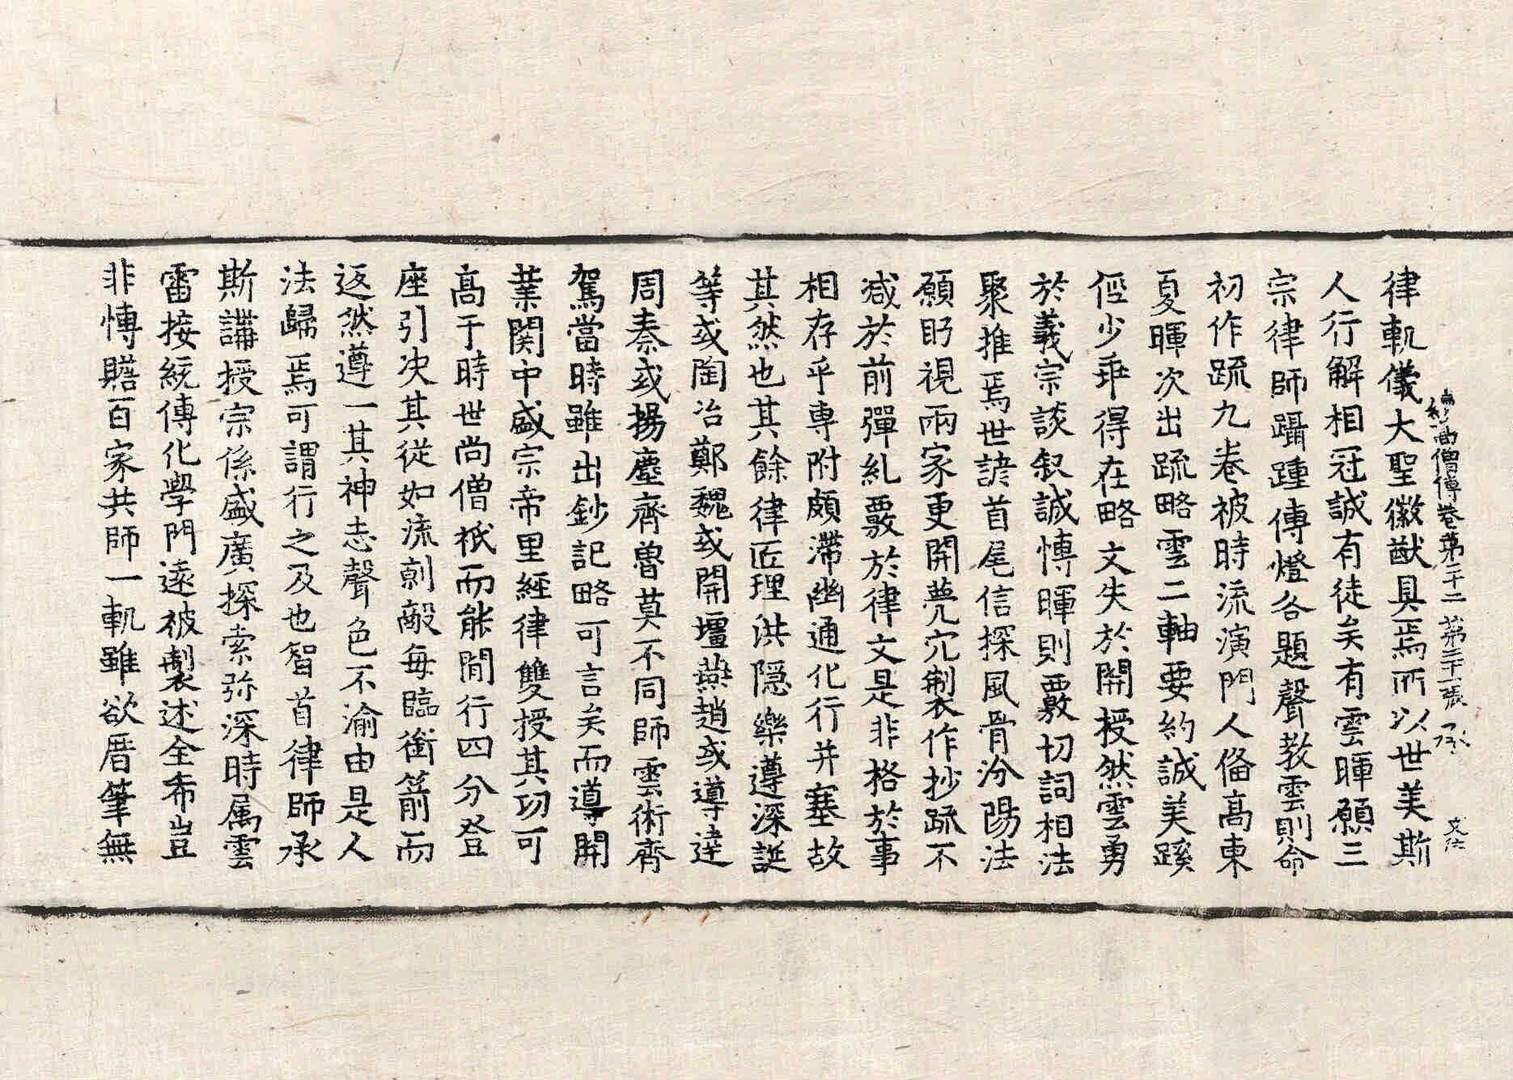 續高僧傳卷第二十二 第三十一張 承
律軌儀大聖徽猷具焉所以世美斯
人行解相冠誠有徒矣有雲暉願三
宗律師躡踵傳燈各題聲教雲則命
初作疏九卷被時流演門人俻高東
夏暉次出疏略雲二軸要約誠美蹊
俓少乖得在略文失於開授然雲勇
於義宗談叙誠愽暉則覈切詞相法
聚推焉世諺首尾信探風骨汾陽法
願眄視兩家更開甍穴制作抄疏不
减於前彈糺覈於律文是非格於事
相存乎專附頗滯幽通化行并塞故
其然也其餘律匠理洪隱樂遵深誕
等或陶冶鄭魏或開壇燕趙或導達
周秦或揚塵齊魯莫不同師雲術齊
駕當時雖出鈔記略可言矣而導開
業関中盛宗帝里經律雙授其功可
高于時世尚僧祇而能閒行四分登
座引决其從如流剬敵每臨衘箭而
返然遵一其神志聲色不渝由是人
法歸焉可謂行之及也智首律師承
斯講授宗係盛廣探索弥深時属雲
雷接統傳化學門遠被製述全布豈
非愽贍百家共師一軌雖欲厝筆無